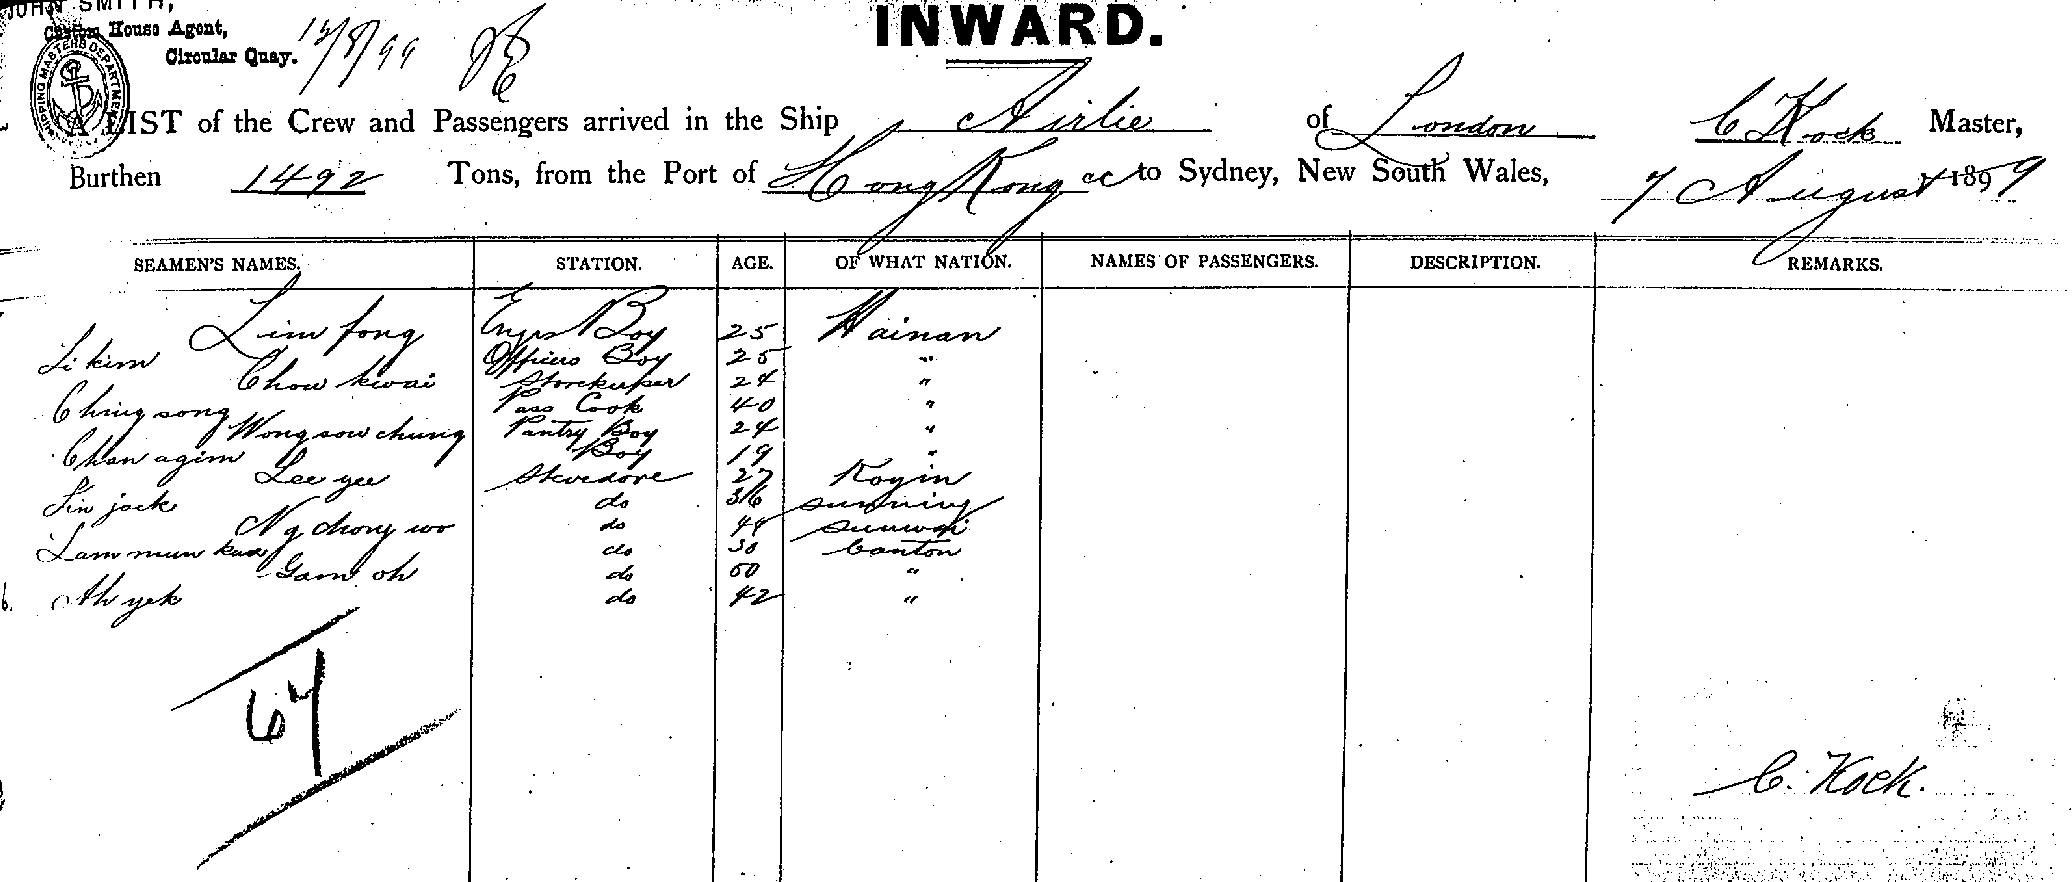 JOHN SMITH,
Custom House Agent,
Circular Quay.
INWARD.
SHIPPING MASTERS DEPARTMENT
A LIST of the Crew and Passengers arrived in the Ship Airlie of London C Kock Master,
Burthen 1492 Tons, from the Port of Hong Kong to Sydney, New South Wales, 7 August 1899
SEAMEN'S NAMES. STATION. AGE. OF WHAT NATION. NAMES OF PASSENGERS. DESCRIPTION. REMARKS.
Lim fong Engrs Boy 25 Hainan
Li kim Officers Boy 25 "
Chow kwai Storekeeper 24 "
Ching song Pass Cook 40 "
Wong sow chung Pantry Boy 24 "
Chan agim Boy 19 "
Lee yee Stevedore 27 Koyin
Lin jack do 36 sunning
Ng chong wo do 48 sunwoi
Lam mun do 30 Canton
Gam oh do 50 "
Ah yek do 42 "
64
C. Kock.